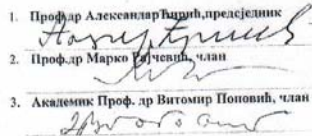 1. Проф.др Александар Ћирић,предсједник
2. Проф.др Марко Рајчевић, члан
3. Академик Проф. др Витомир Поповић, члан